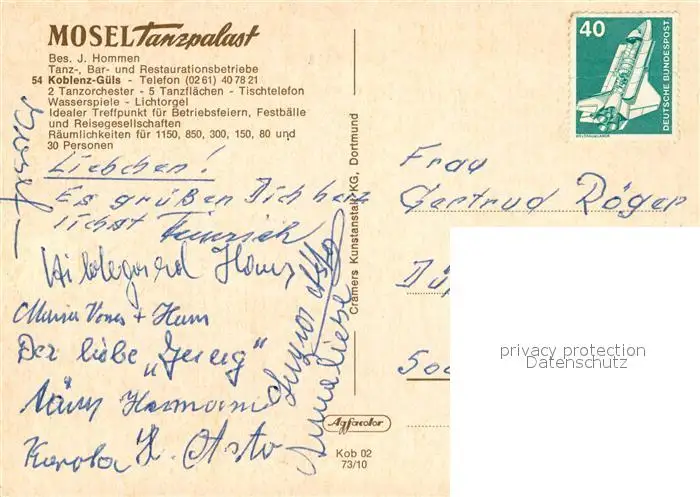 MOSEL Tanzpalast
Bes. J. Hommen
Tanz-, Bar- und Restaurationsbetriebe
54 Koblenz-Güls - Telefon (02 61) 40 78 21
2 Tanzorchester - 5 Tanzflächen - Tischtelefon
Wasserspiele - Lichtorgel
Idealer Treffpunkt für Betriebsfeiern, Festbälle
und Reisegesellschaften
Räumlichkeiten für 1150, 850, 300, 150, 80 und
30 Personen
Liebchen!
Es grüßen Dich herz
lichst Heinrich
Hildegard Hans
Maria + Hans
Der liebe „
Hermann
Karola
Anneliese
Cramers Kunstanstalt KG, Dortmund
Agfacolor
Kob 02
73/10
40
DEUTSCHE BUNDESPOST
WELTRAUMLABOR
Frau
Gertrud Röger
privacy protection
Datenschutz